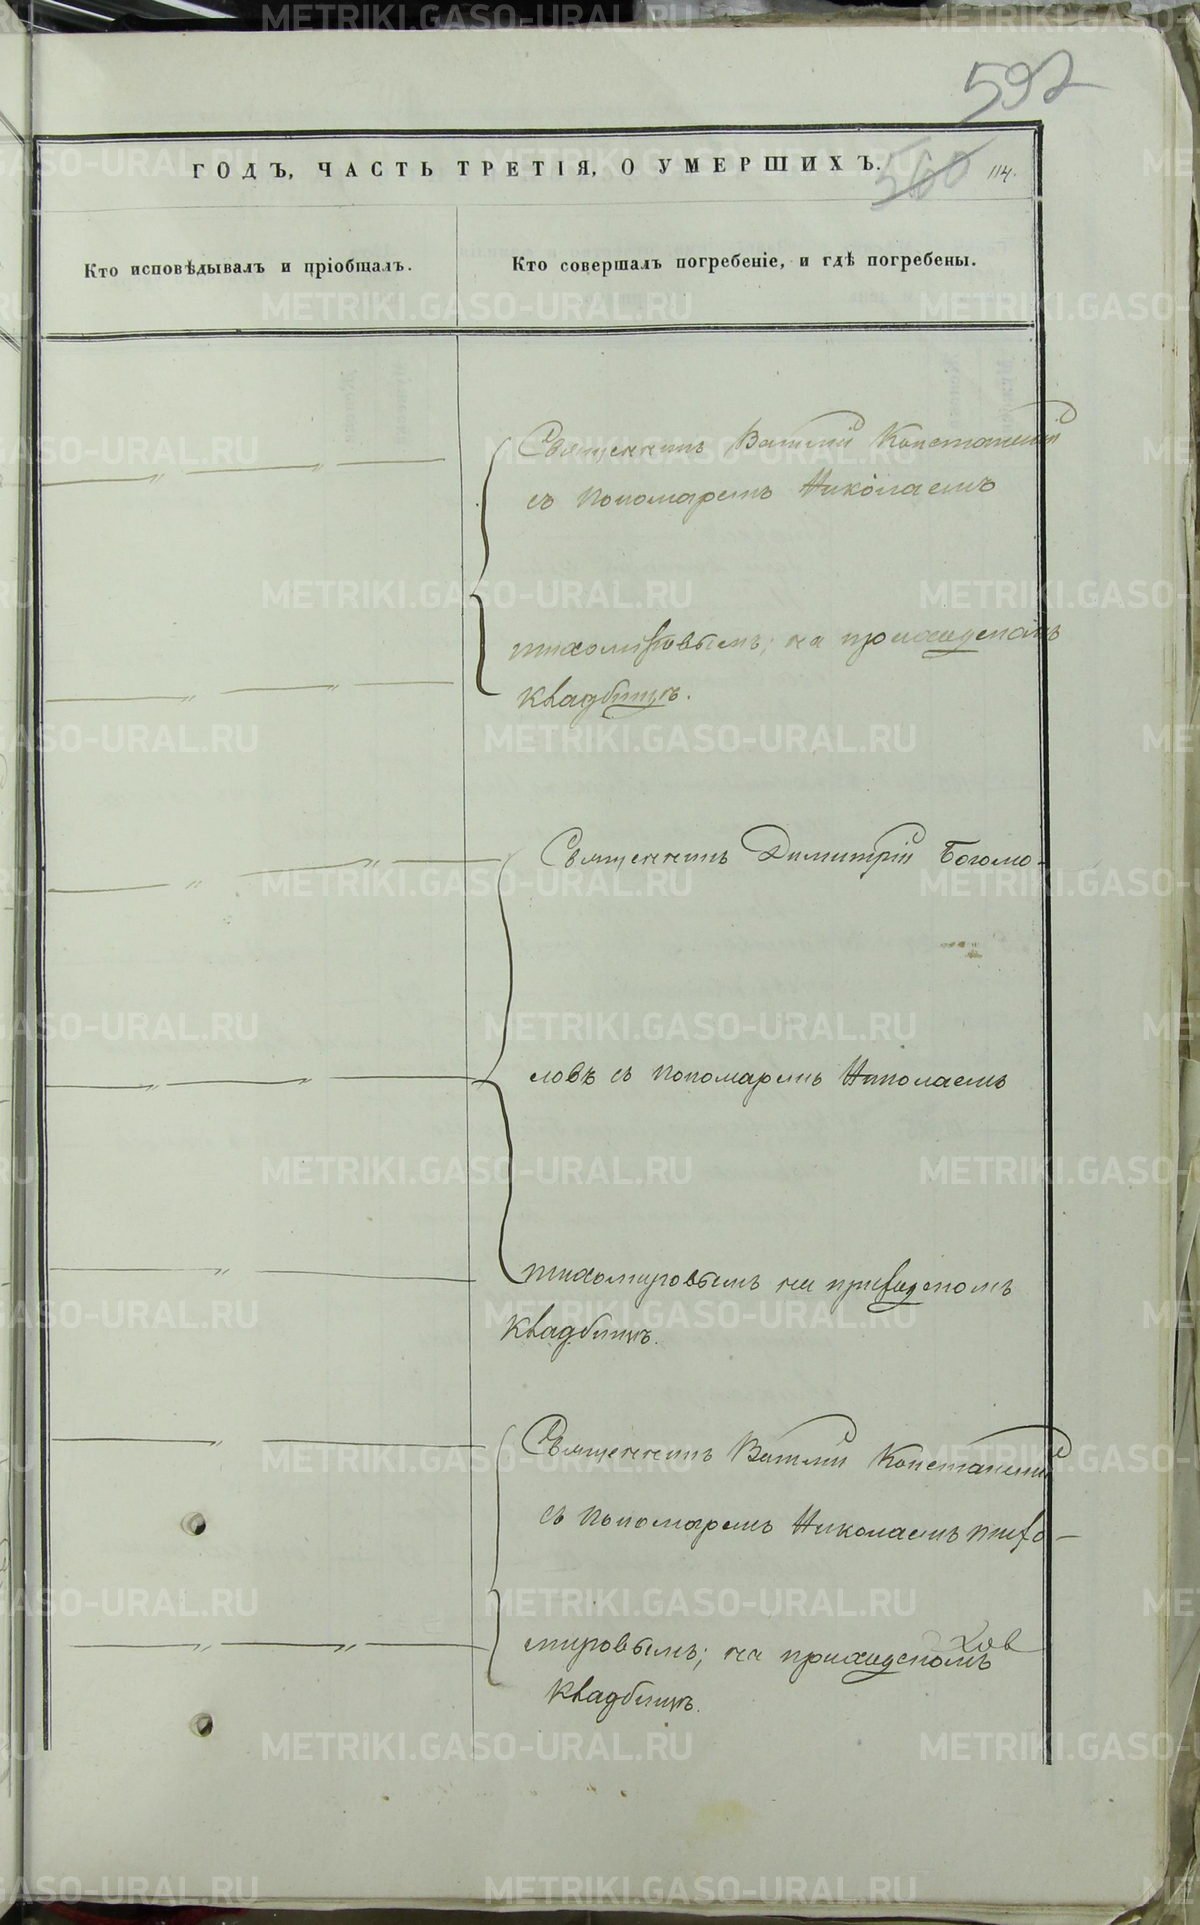 592
ГОДЪ, ЧАСТЬ ТРЕТІЯ, О УМЕРШИХЪ.
560 114.
Кто исповѣдывалъ и пріобщалъ.
Кто совершалъ погребеніе, и гдѣ погребены.
Священникъ Василій
съ пономаремъ Николаемъ
тихомировымъ; на приходскомъ
кладбищѣ.
Священникъ Димитрій Богомо-
ловъ съ пономаремъ Николаемъ
тихомировымъ на приходскомъ
кладбищѣ.
Священникъ Василій
съ пономаремъ Николаемъ тихо-
мировымъ; на приходскомъ
кладбищѣ.
METRIKI.GASO-URAL.RU